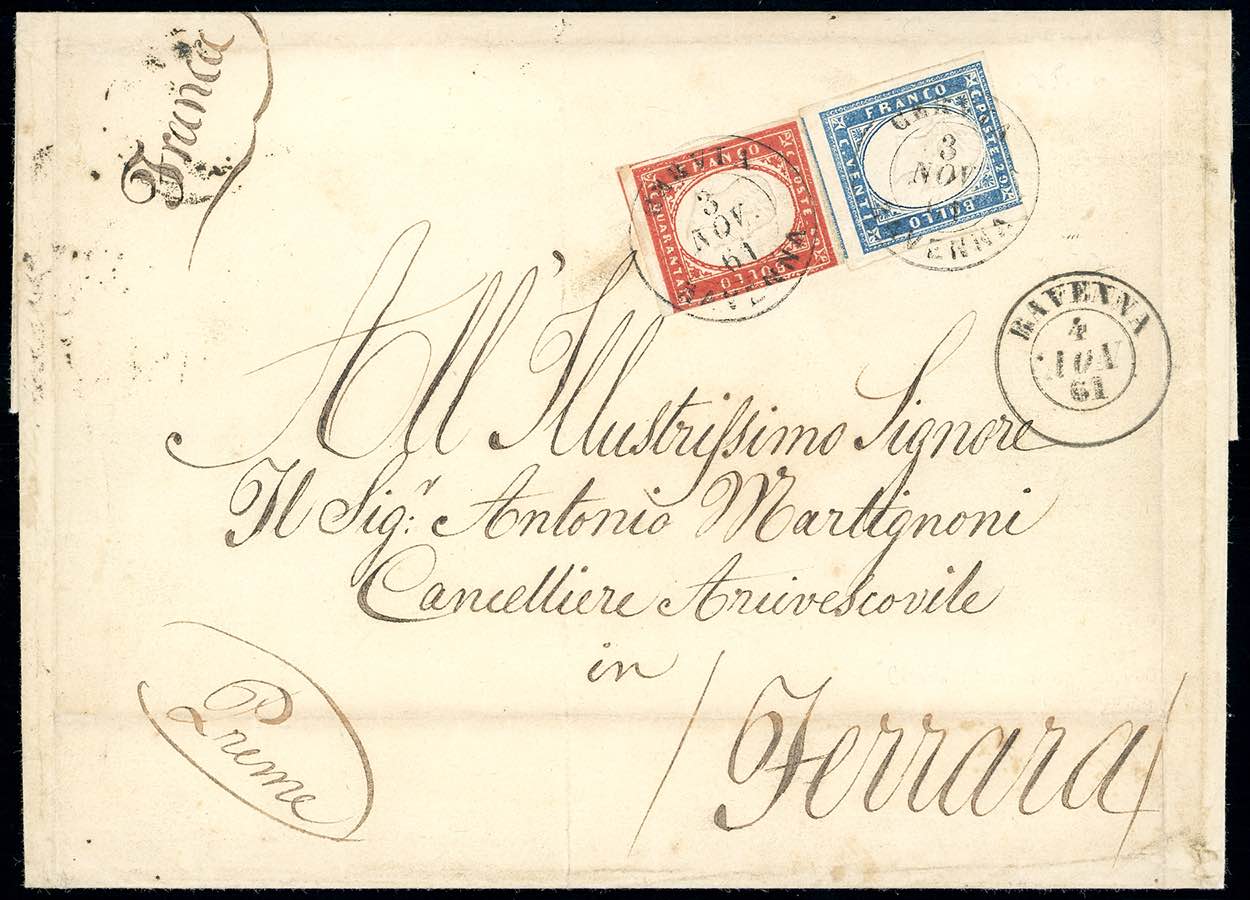 Franca
FRANCO
C. POSTE 20
BOLLO
C. VENTI
FRANCO
C. POSTE 40
BOLLO
C. QUARANTA
CERVIA
3
NOV.
61
RAVENNA
CERVIA
3
NOV
RAVENNA
RAVENNA
4
NOV
61
All' Illustrissimo Signore
Il Sig.r Antonio Martignoni
Cancelliere Arcivescovile
in
Ferrara
Preme